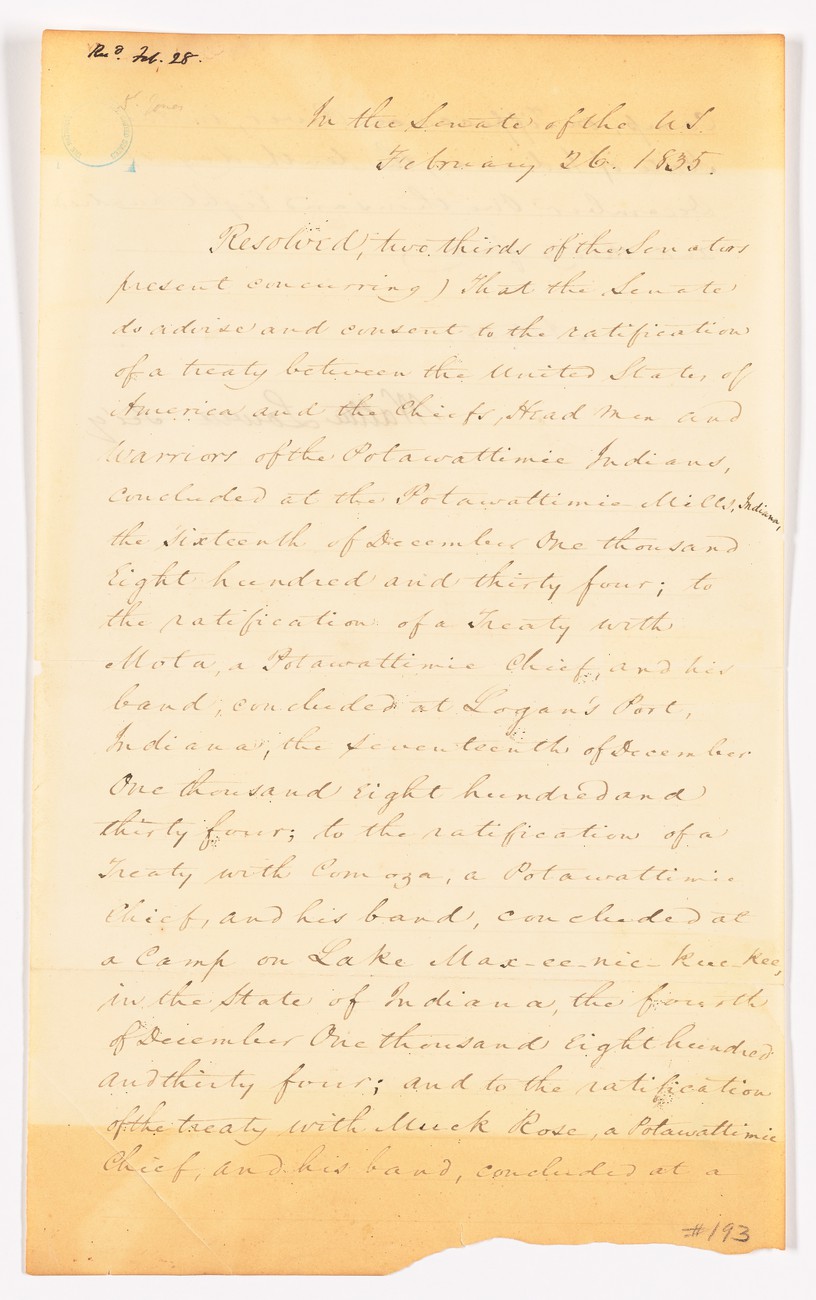 Rec'd. Feb. 28.
In the Senate of the U S.
February 26. 1835.
Resolved, two thirds of the Senators
present concurring) That the Senate
do advise and consent to the ratification
of a treaty between the United States of
America and the Chiefs, Head Men and
Warriors of the Potawattimie Indians,
concluded at the Potawattimie Mills, Indiana,
the Sixteenth of December One thousand
Eight hundred and thirty four; to
the ratification of a Treaty with
Mota, a Potawattimie Chief, and his
band, concluded at Logan's Port,
Indiana, the seventeenth of December
One thousand Eight hundred and
thirty four; to the ratification of a
Treaty with Comoza, a Potawattimie
Chief, and his band, concluded at
a Camp on Lake Max-ee-nie-kue-kee,
in the State of Indiana, the fourth
of December One thousand Eight hundred
and thirty four; and to the ratification
of the treaty with Muck Rose, a Potawattimie
Chief, and his band, concluded at a
#193